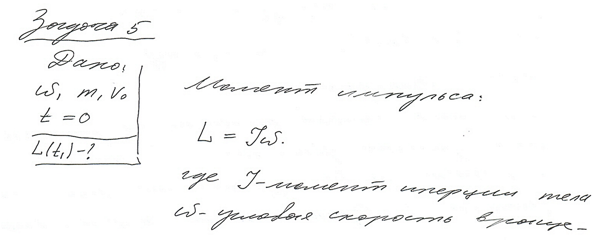 Задача 5
Дано:
ω, m, v₀
t = 0
L(t₁) - ?
Момент импульса:
L = Jω.
где J - момент инерции тела
ω - угловая скорость враще-